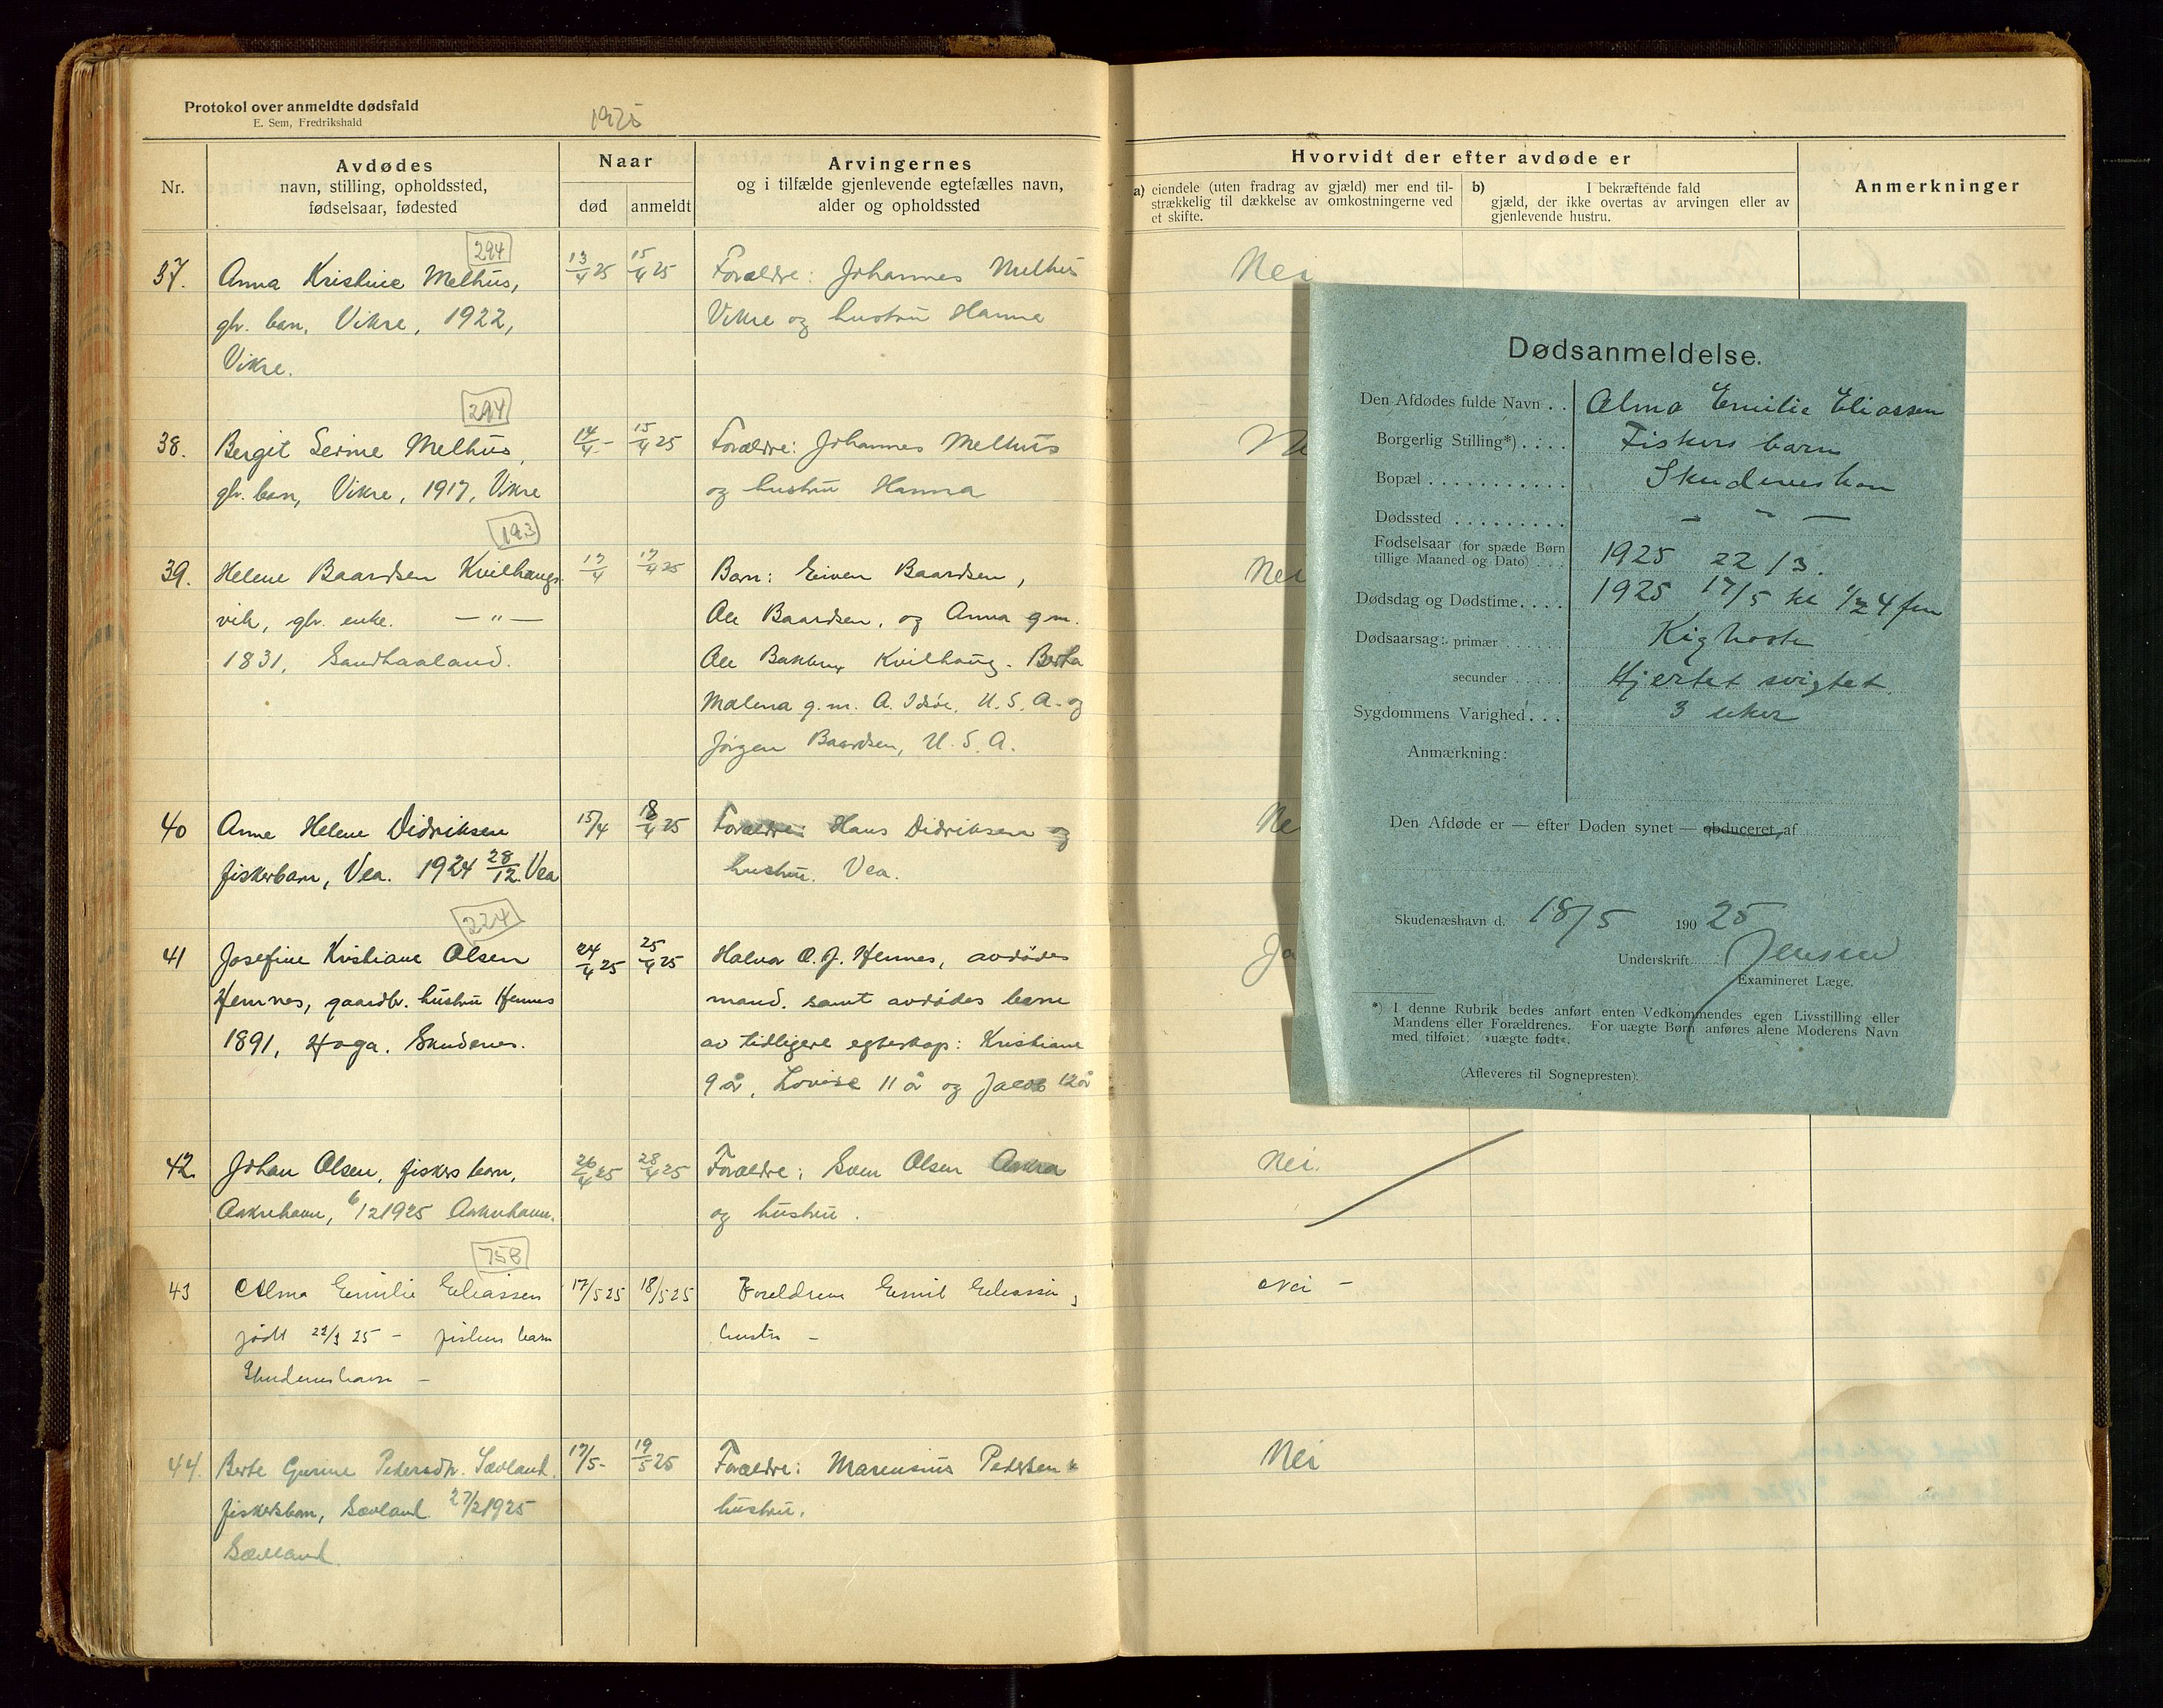 Protokol over anmeldte dødsfald
E. Sem, Fredrikshald
1925
Nr.
Avdødes
navn, stilling, opholdssted,
fødselsaar, fødested
Naar
død
anmeldt
Arvingernes
og i tilfælde gjenlevende egtefælles navn,
alder og opholdssted
294
37.
Anna Kristine Melhus,
gbr. barn, Vikre, 1922,
Vikre.
13/4 25
15/4 25
Forældre: Johannes Melhus
Vikre og hustru Hanna
294
38.
Bergit Serine Melhus,
gbr. barn, Vikre, 1917, Vikre
14/4 -
15/4 25
Forældre: Johannes Melhus
og hustru Hanna
193
39.
Helene Baardsen Kvilhaugs
vik, gbr. enke. — " —
1831, Sandhaaland.
17/4
17/4 25
Barn: Eiven Baardsen,
Ole Baardsen, og Anna g.m.
Ole Kvilhaug. Berta
Malena g.m. A. Idsøe, U.S.A. og
Jörgen Baardsen, U.S.A.
40
Anne Helene Didriksen
fiskerbarn, Vea. 1924 28/12. Vea
15/4
18/4 25
Forældre: Hans Didriksen og
hustru. Vea.
224
41
Josefine Kristiane Olsen
Hemnes, gaardbr. hustru Hemnes
1891, Hoga. Skudenes.
24/4 25
25/4 25
Halvor O. J. Hemnes, avdødes
mand. samt avdødes barn
av tidligere egteskap: Kristiane
9 år, Lovise 11 år og Jacob 12 år
42.
Johan Olsen, fiskers barn,
Aakrehavn, 6/2 1925 Aakrehavn.
26/4 25
28/4 25
Forældre: Sven Olsen Aakra
og hustru.
758
43
Alma Emilie Eliassen
født 22/3 25 - fiskers barn
Skudeneshavn -
17/5 25
18/5 25
Foreldrene Emil Eliassen
hustru -
44.
Berte Gurine Pedersdtr. Sævland.
fiskersbarn, Sævland. 27/2 1925
Sævland.
17/5 -
19/5 25
Forældre: Marensius Pedersen &
hustru.
Hvorvidt der efter avdøde er
a) eiendele (uten fradrag av gjæld) mer end til-
strækkelig til dækkelse av omkostningerne ved
et skifte.
b) I bekræftende fald
gjæld, der ikke overtas av arvingen eller av
gjenlevende hustru.
Anmerkninger
Nei
Nei
Ja
Nei.
Nei -
Nei
Dødsanmeldelse.
Den Afdødes fulde Navn . . Alma Emilie Eliassen
Borgerlig Stilling*) . . . . Fiskers barn
Bopæl . . . . . . . . . . . Skudeneshavn
Dødssted . . . . . . . . . — " —
Fødselsaar (for spæde Børn
tillige Maaned og Dato) . . . 1925 22/3.
Dødsdag og Dødstime. . . . 1925 17/5 kl 1/2 4 fm
Dødsaarsag: primær . . . . . . Kighoste
secunder . . . . . Hjertet svigtet
Sygdommens Varighed. . . 3 uker
Anmærkning:
Den Afdøde er — efter Døden synet — obduceret af
Skudenæshavn d. 18/5 190 25
Underskrift Jensen
Examineret Læge.
*) I denne Rubrik bedes anført enten Vedkommendes egen Livsstilling eller
Mandens eller Forældrenes. For uægte Børn anføres alene Moderens Navn
med tilføiet: »uægte født«.
(Afleveres til Sognepresten).